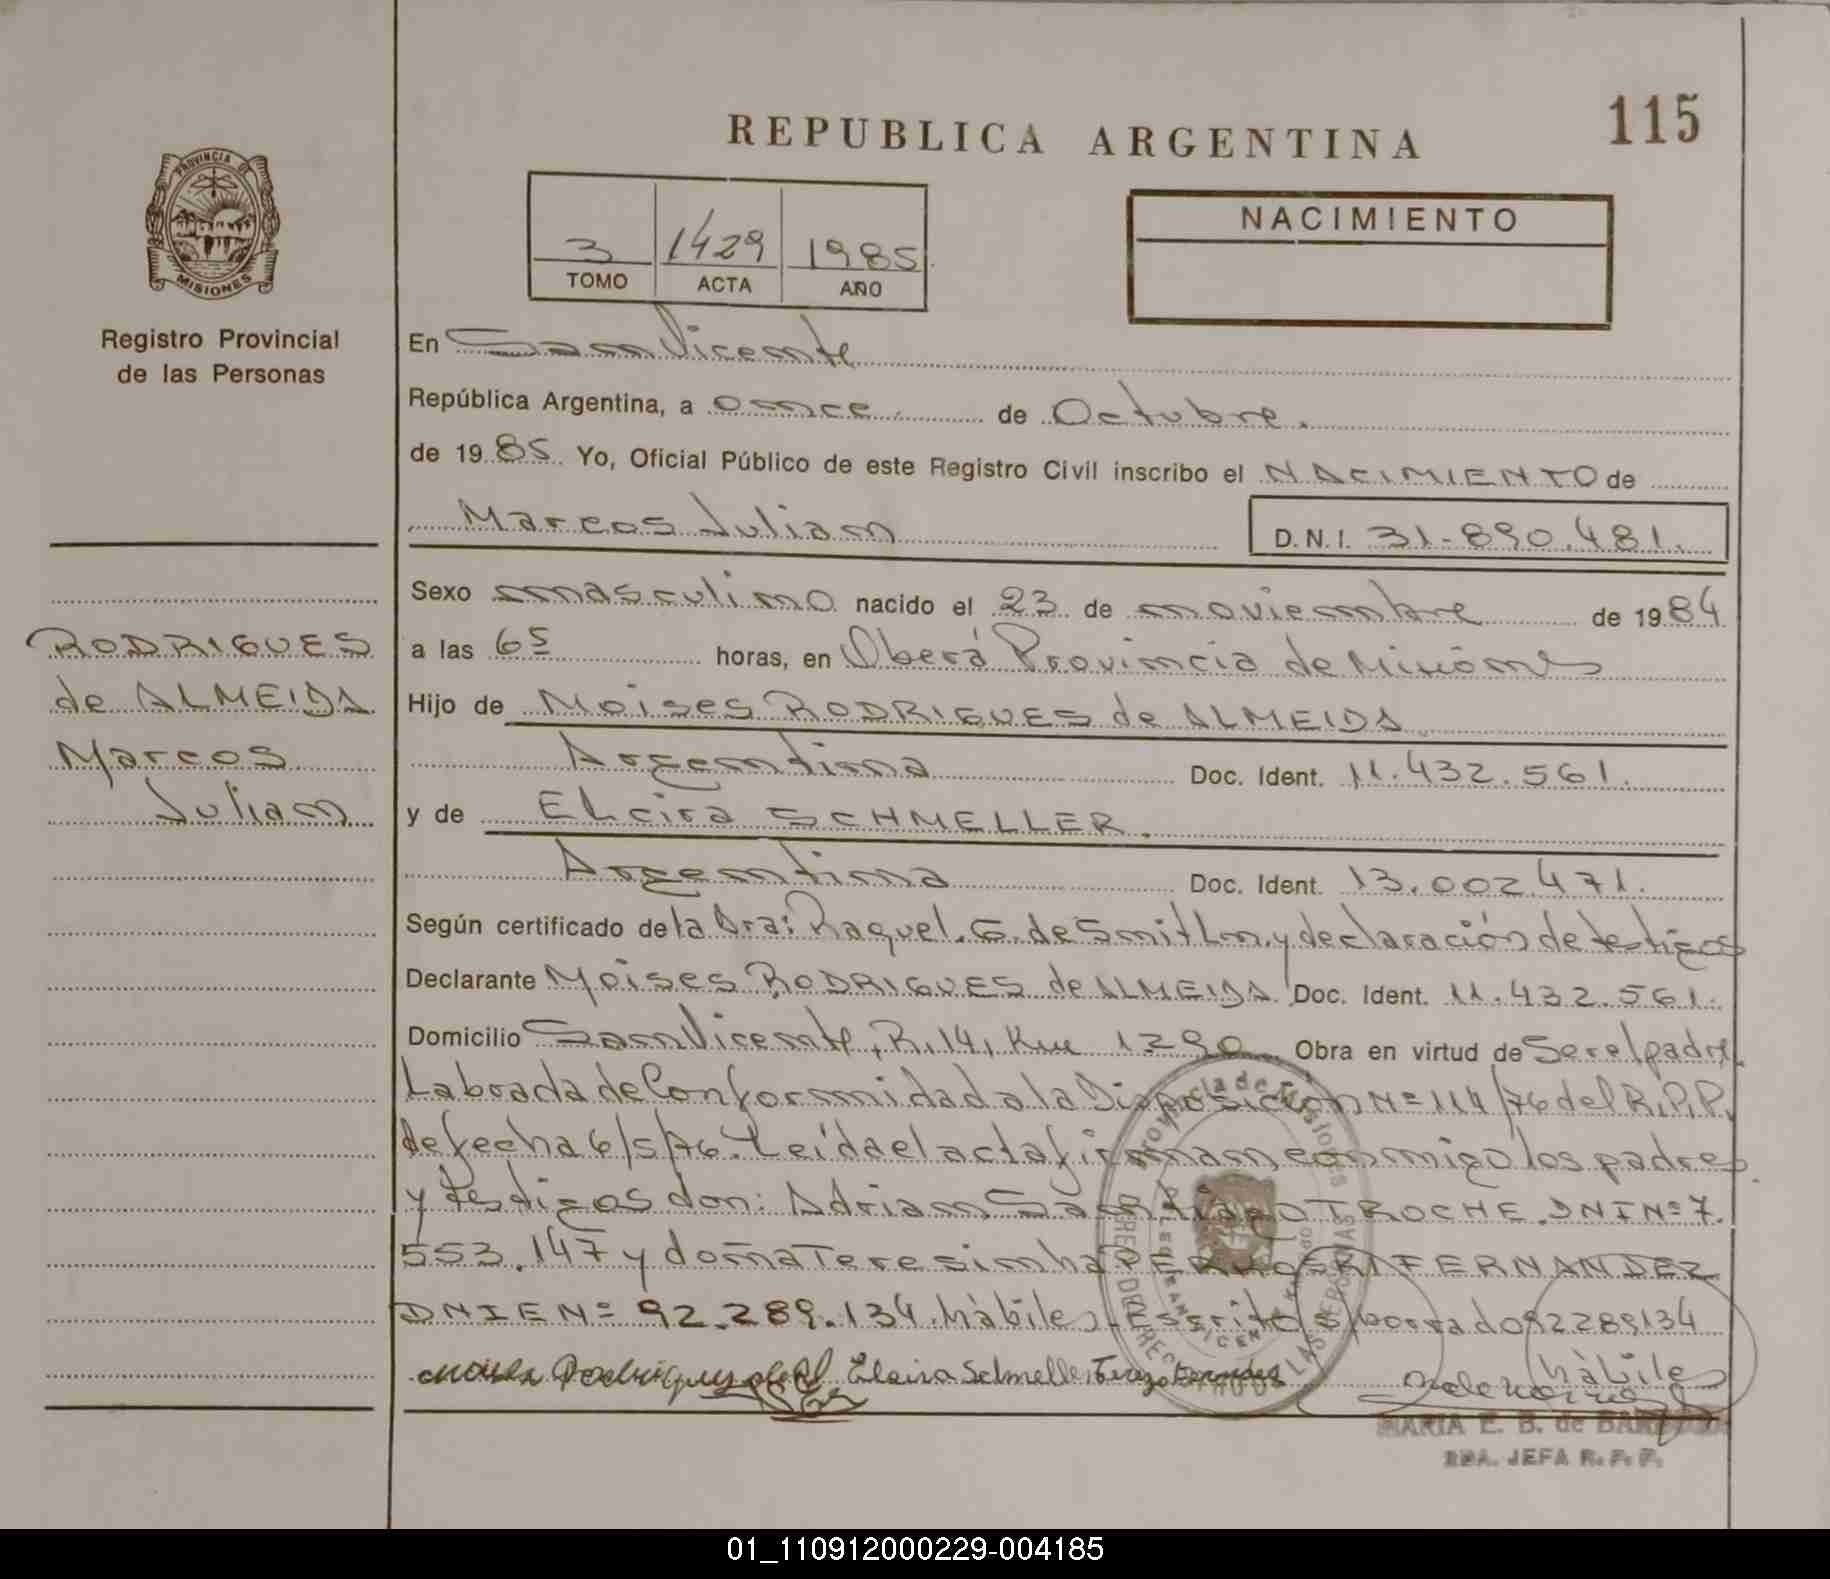 115
REPUBLICA ARGENTINA
PROVINCIA DE
MISIONES
Registro Provincial
de las Personas
3 1429 1985
TOMO ACTA AÑO
NACIMIENTO
En San Vicente
República Argentina, a once de Octubre.
de 1985. Yo, Oficial Público de este Registro Civil inscribo el NACIMIENTO de
Marcos Julian D.N.I. 31-890.481.
Sexo masculino nacido el 23 de noviembre de 1984
a las 6s horas, en Oberá Provincia de Misiones
Hijo de Moises RODRIGUES de ALMEIDA
Argentina Doc. Ident. 11.432.561.
y de Elcira SCHMELLER.
Argentina Doc. Ident. 13.002.471.
Según certificado de la Dra: Raquel. G. de Smith y declaración de testigos
Declarante Moises RODRIGUES de ALMEIDA Doc. Ident. 11.432.561.
Domicilio San Vicente, R. 14, Km 1290 Obra en virtud de Ser el padre.
Labrada de Conformidad a la Disposición Nº 114/76 del R.P.P.
de fecha 6/5/76. Leída el acta firman conmigo los padres
y testigos don: Adrian Santiago TROCHE. DNI Nº 7.
553.147 y doña Teresinha FERNANDEZ
DNIE Nº 92.289.134. hàbiles. Escrito s/borrado 92289134
hàbiles
Elcira Schmeller
MARIA E. B. de
JEFA R. P. P.
RODRIGUES
de ALMEIDA
Marcos
Julian
01_110912000229-004185